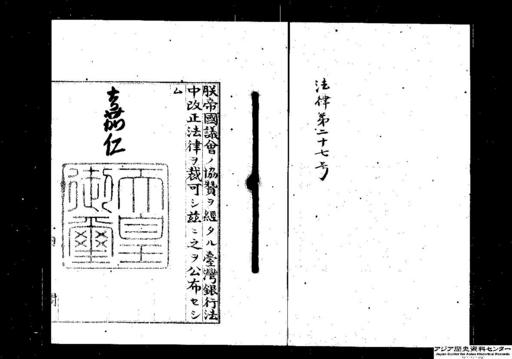 法律第二十七号
朕帝國議會ノ協贊ヲ經タル臺灣銀行法
中改正法律ヲ裁可シ茲ニ之ヲ公布セシ
ム
嘉仁
天皇
御璽
アジア歴史資料センター
Japan Center for Asian Historical Records